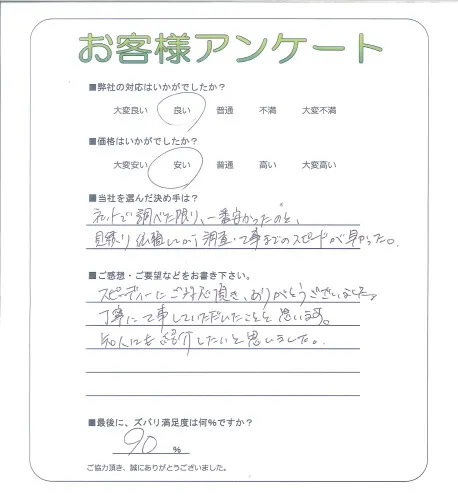 お客様アンケート
■弊社の対応はいかがでしたか？
大変良い 良い 普通 不満 大変不満
■価格はいかがでしたか？
大変安い 安い 普通 高い 大変高い
■当社を選んだ決め手は？
ネットで調べた限り、一番安かったのと、
見積り依頼してから調査・工事までのスピードが早かった。
■ご感想・ご要望などをお書き下さい。
スピーディーにご対応頂き、ありがとうございました。
丁寧に工事していただいたことと思います。
知人にもご紹介したいと思いました。
■最後に、ズバリ満足度は何％ですか？
90 ％
ご協力頂き、誠にありがとうございました。